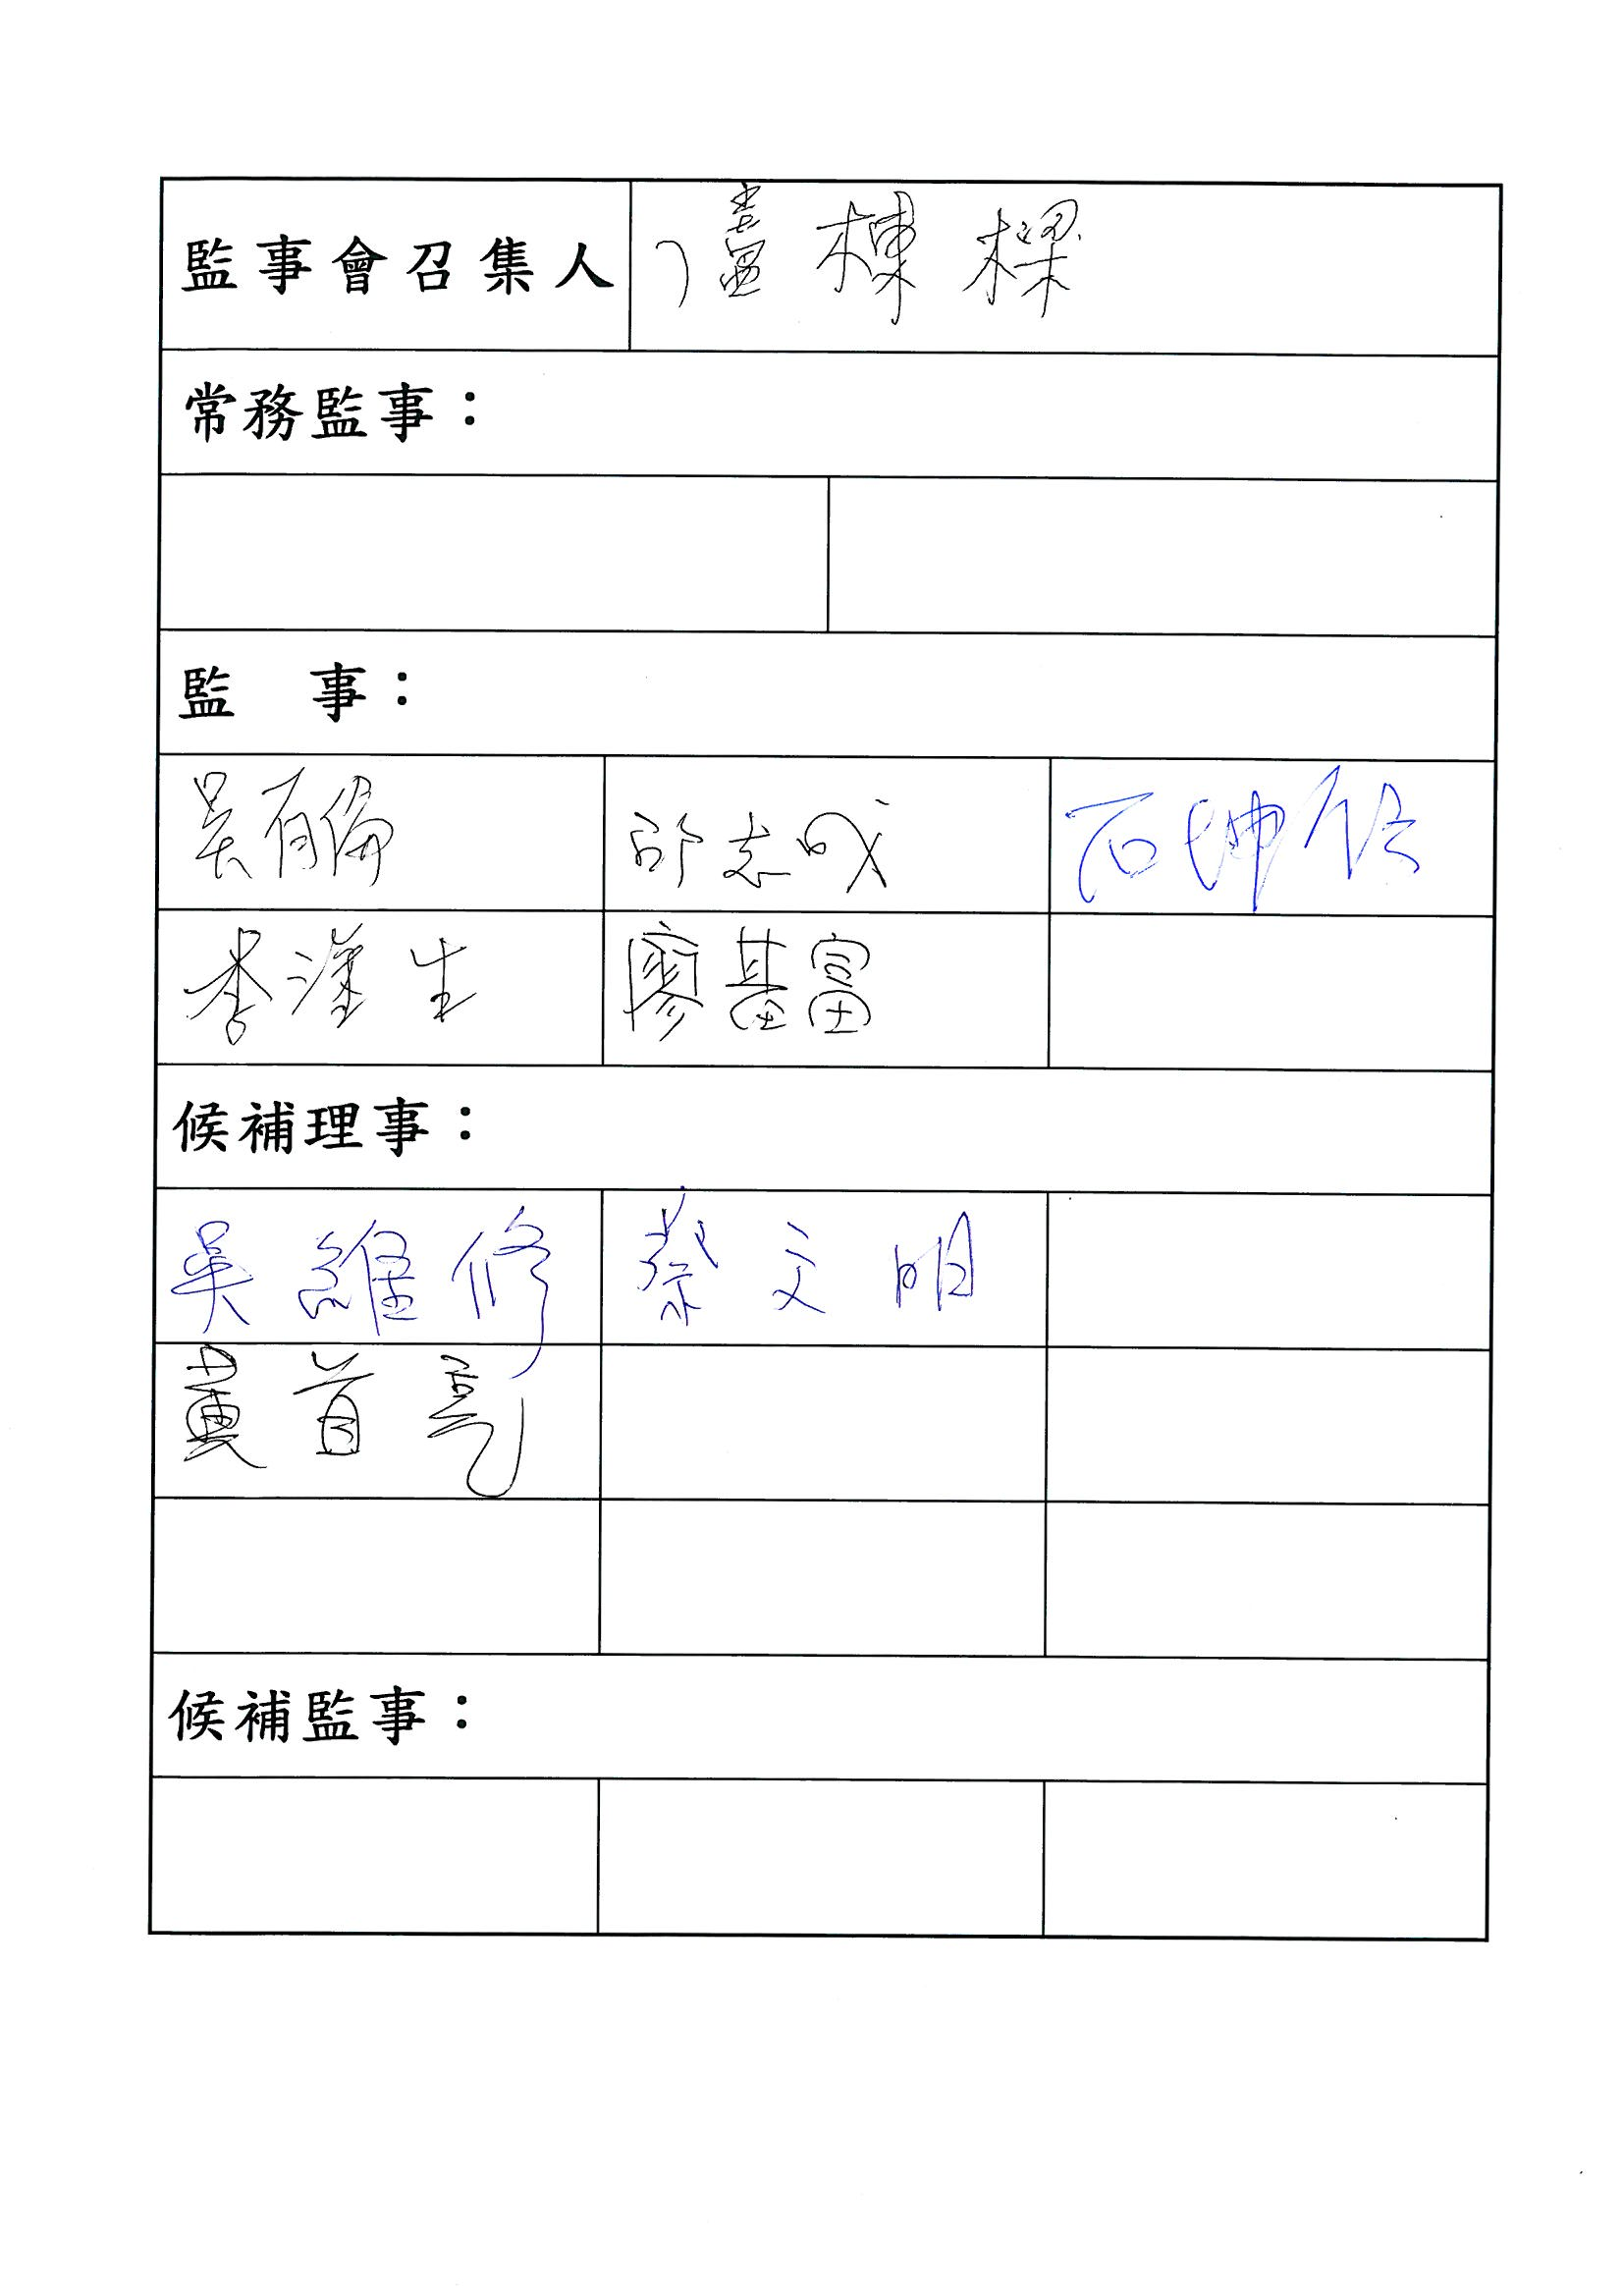 監事會召集人 棟樑
常務監事：
監 事：
吳有倫 邱志明 石坤
李漢生 廖基富
候補理事：
吳維修 蔡文明
黃首哥
候補監事：